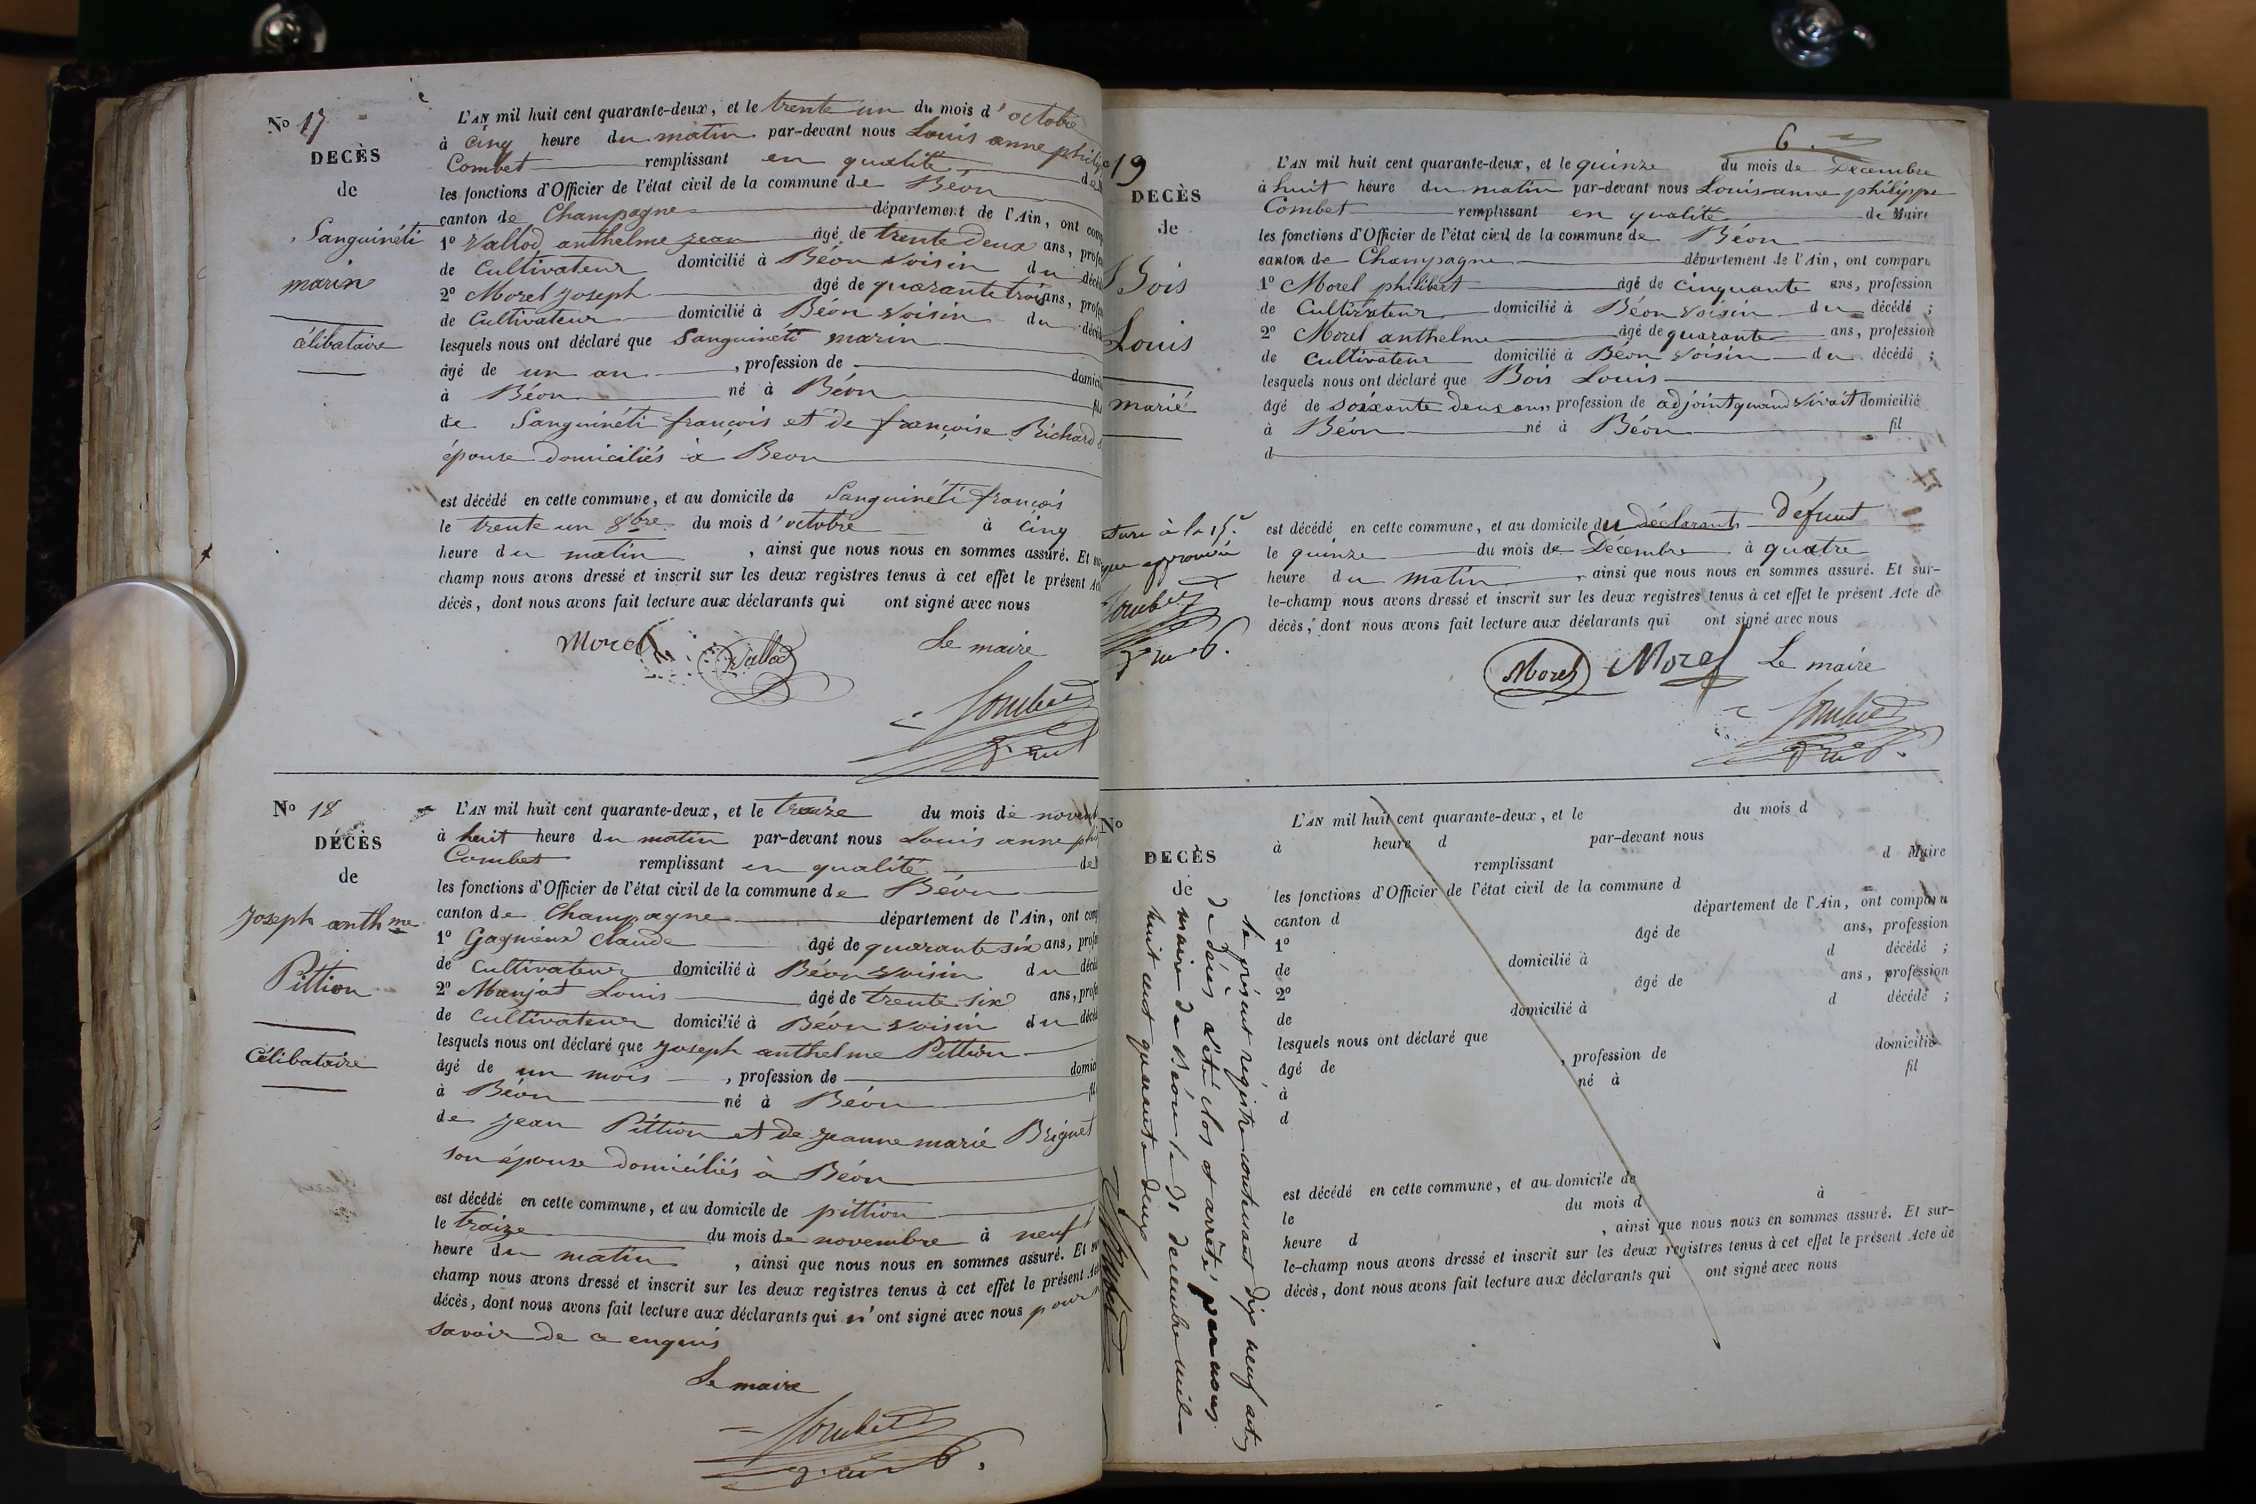 No 17
DECÈS
de
Sanguinéti
marin
célibataire
L'AN mil huit cent quarante-deux, et le trente un du mois d'octobre
à cinq heure du matin par-devant nous Louis anne philip
Combet remplissant en qualité de
les fonctions d'Officier de l'état civil de la commune de Béon
canton de Champagne département de l'Ain, ont com
1o Vallod anthelme jean âgé de trente deux ans, profes
de Cultivateur domicilié à Béon voisin du décéd
2o Morel Joseph âgé de quarante trois ans, profes
de Cultivateur domicilié à Béon voisin du décéd
lesquels nous ont déclaré que Sanguinéti marin
âgé de un an , profession de domici
à Béon né à Béon fil
de Sanguinéti françois et de françoise Richard
épouse domiciliés à Beon
est décédé en cette commune, et au domicile de Sanguinéti françois
le trente un 8bre du mois d'octobre à cinq
heure du matin , ainsi que nous nous en sommes assuré. Et su
champ nous avons dressé et inscrit sur les deux registres tenus à cet effet le présent Ac
décès, dont nous avons fait lecture aux déclarants qui ont signé avec nous
Morel Vallod Le maire
Combet
No 18
DÉCÈS
de
Joseph anthme
Pittion
Célibataire
L'AN mil huit cent quarante-deux, et le treize du mois de novemb
à huit heure du matin par-devant nous Louis anne phi
Combet remplissant en qualité de
les fonctions d'Officier de l'état civil de la commune de Béon
canton de Champagne département de l'Ain, ont com
1o Gagnieux Claude âgé de quarante six ans, profe
de Cultivateur domicilié à Béon voisin du décéd
2o Manjot Louis âgé de trente six ans, profe
de Cultivateur domicilié à Béon voisin du décéd
lesquels nous ont déclaré que Joseph anthelme Pittion
âgé de un mois , profession de domic
à Béon né à Béon fil
de Jean Pittion et de Jeanne marie Brignet
son épouse domiciliés à Béon
est décédé en cette commune, et au domicile de pittion
le traize du mois de novembre à neuf
heure du matin , ainsi que nous nous en sommes assuré. Et su
champ nous avons dressé et inscrit sur les deux registres tenus à cet effet le présent Ac
décès, dont nous avons fait lecture aux déclarants qui n'ont signé avec nous pour
savoir de ce enquis
Le maire
Combet
6
19
DECÈS
de
Bois
Louis
marié
L'AN mil huit cent quarante-deux, et le quinze du mois de Decembre
à huit heure du matin par-devant nous Louis anne philippe
Combet remplissant en qualité de Maire
les fonctions d'Officier de l'état civil de la commune de Béon
canton de Champagne département de l'Ain, ont comparu
1o Morel philibert âgé de cinquante ans, profession
de Cultivateur domicilié à Béon voisin du décédé ;
2o Morel anthelme âgé de quarante ans, profession
de Cultivateur domicilié à Béon voisin du décédé ;
lesquels nous ont déclaré que Bois Louis
âgé de soixante deux ans, profession de adjoint quand vivait domicilié
à Béon né à Béon fil
d
est décédé en cette commune, et au domicile du déclarant Défunt
le quinze du mois de Décembre à quatre
heure du matin , ainsi que nous nous en sommes assuré. Et sur-
le-champ nous avons dressé et inscrit sur les deux registres tenus à cet effet le présent Acte de
décès, dont nous avons fait lecture aux déclarants qui ont signé avec nous
Morel Morel Le maire
Combet
ture à la 15e
gne approuvée
Combet
No
DECÈS
de
L'AN mil huit cent quarante-deux, et le du mois d
à heure d par-devant nous
remplissant d Maire
les fonctions d'Officier de l'état civil de la commune d
canton d département de l'Ain, ont comparu
1o âgé de ans, profession
de domicilié à d décédé ;
2o âgé de ans, profession
de domicilié à d décédé ;
lesquels nous ont déclaré que
âgé de , profession de domicilié
à né à fil
d
est décédé en cette commune, et au domicile de
le du mois d à
heure d , ainsi que nous nous en sommes assuré. Et sur-
le-champ nous avons dressé et inscrit sur les deux registres tenus à cet effet le présent Acte de
décès, dont nous avons fait lecture aux déclarants qui ont signé avec nous
Le présent régistre contenant dix neuf actes
de décès a été clos et arrêté par nous
maire de Béon le 31 decembre mil
huit cent quarante deux
Combet